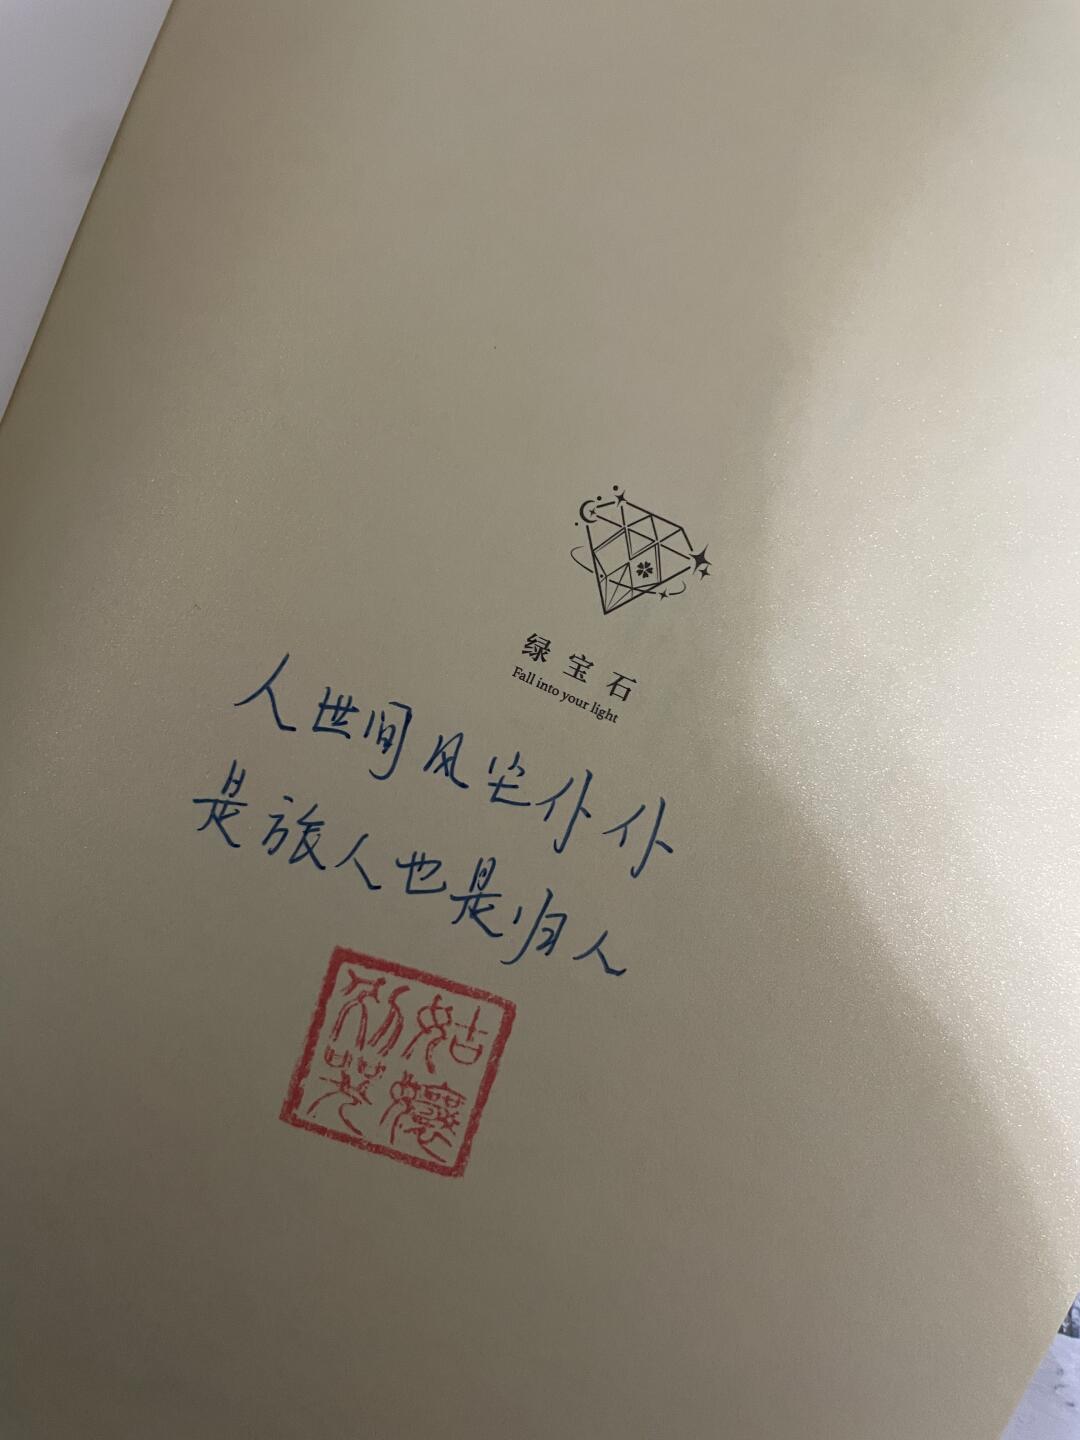 绿宝石
Fall into your light
人世间风尘仆仆
是旅人也是归人
姑娘别哭